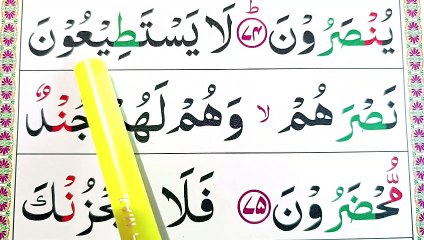 يُنْصَرُوْنَ ﴿۷۴﴾ۙ لَا يَسْتَطِيْعُوْنَ
نَصْرَهُمْ ۙ وَهُمْ لَهُمْ جُنْدٌ
مُّحْضَرُوْنَ ﴿۷۵﴾ فَلَا يَحْزُنْكَ